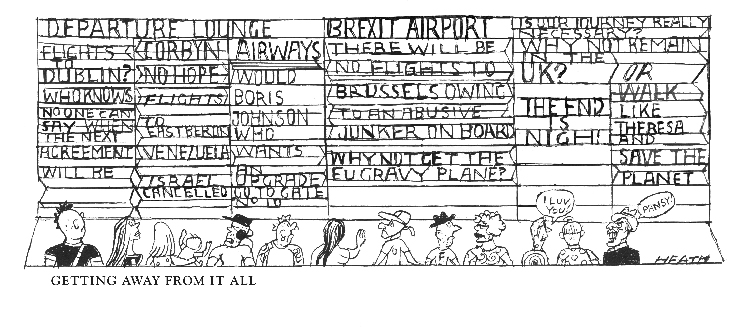 DEPARTURE LOUNGE
FLIGHTS
TO
DUBLIN?
WHO KNOWS
NO ONE CAN
SAY WHEN
THE NEXT
AGREEMENT
WILL BE
CORBYN
NO HOPE
FLIGHTS
TO
EAST BERLIN
VENEZUELA
ISRAEL
CANCELLED
AIRWAYS
WOULD
BORIS
JOHNSON
WHO
WANTS
AN
UPGRADE
GO TO GATE
No 10
BREXIT AIRPORT
THERE WILL BE
NO FLIGHTS TO
BRUSSELS OWING
TO AN ABUSIVE
JUNKER ON BOARD
WHY NOT GET THE
EU GRAVY PLANE?
IS OUR JOURNEY REALLY
NECESSARY?
WHY NOT REMAIN
IN THE
UK?
THE END
IS
NIGH!
OR
WALK
LIKE
THERESA
AND
SAVE THE
PLANET
I LUV
YOU
PANSY!
HEATH
GETTING AWAY FROM IT ALL